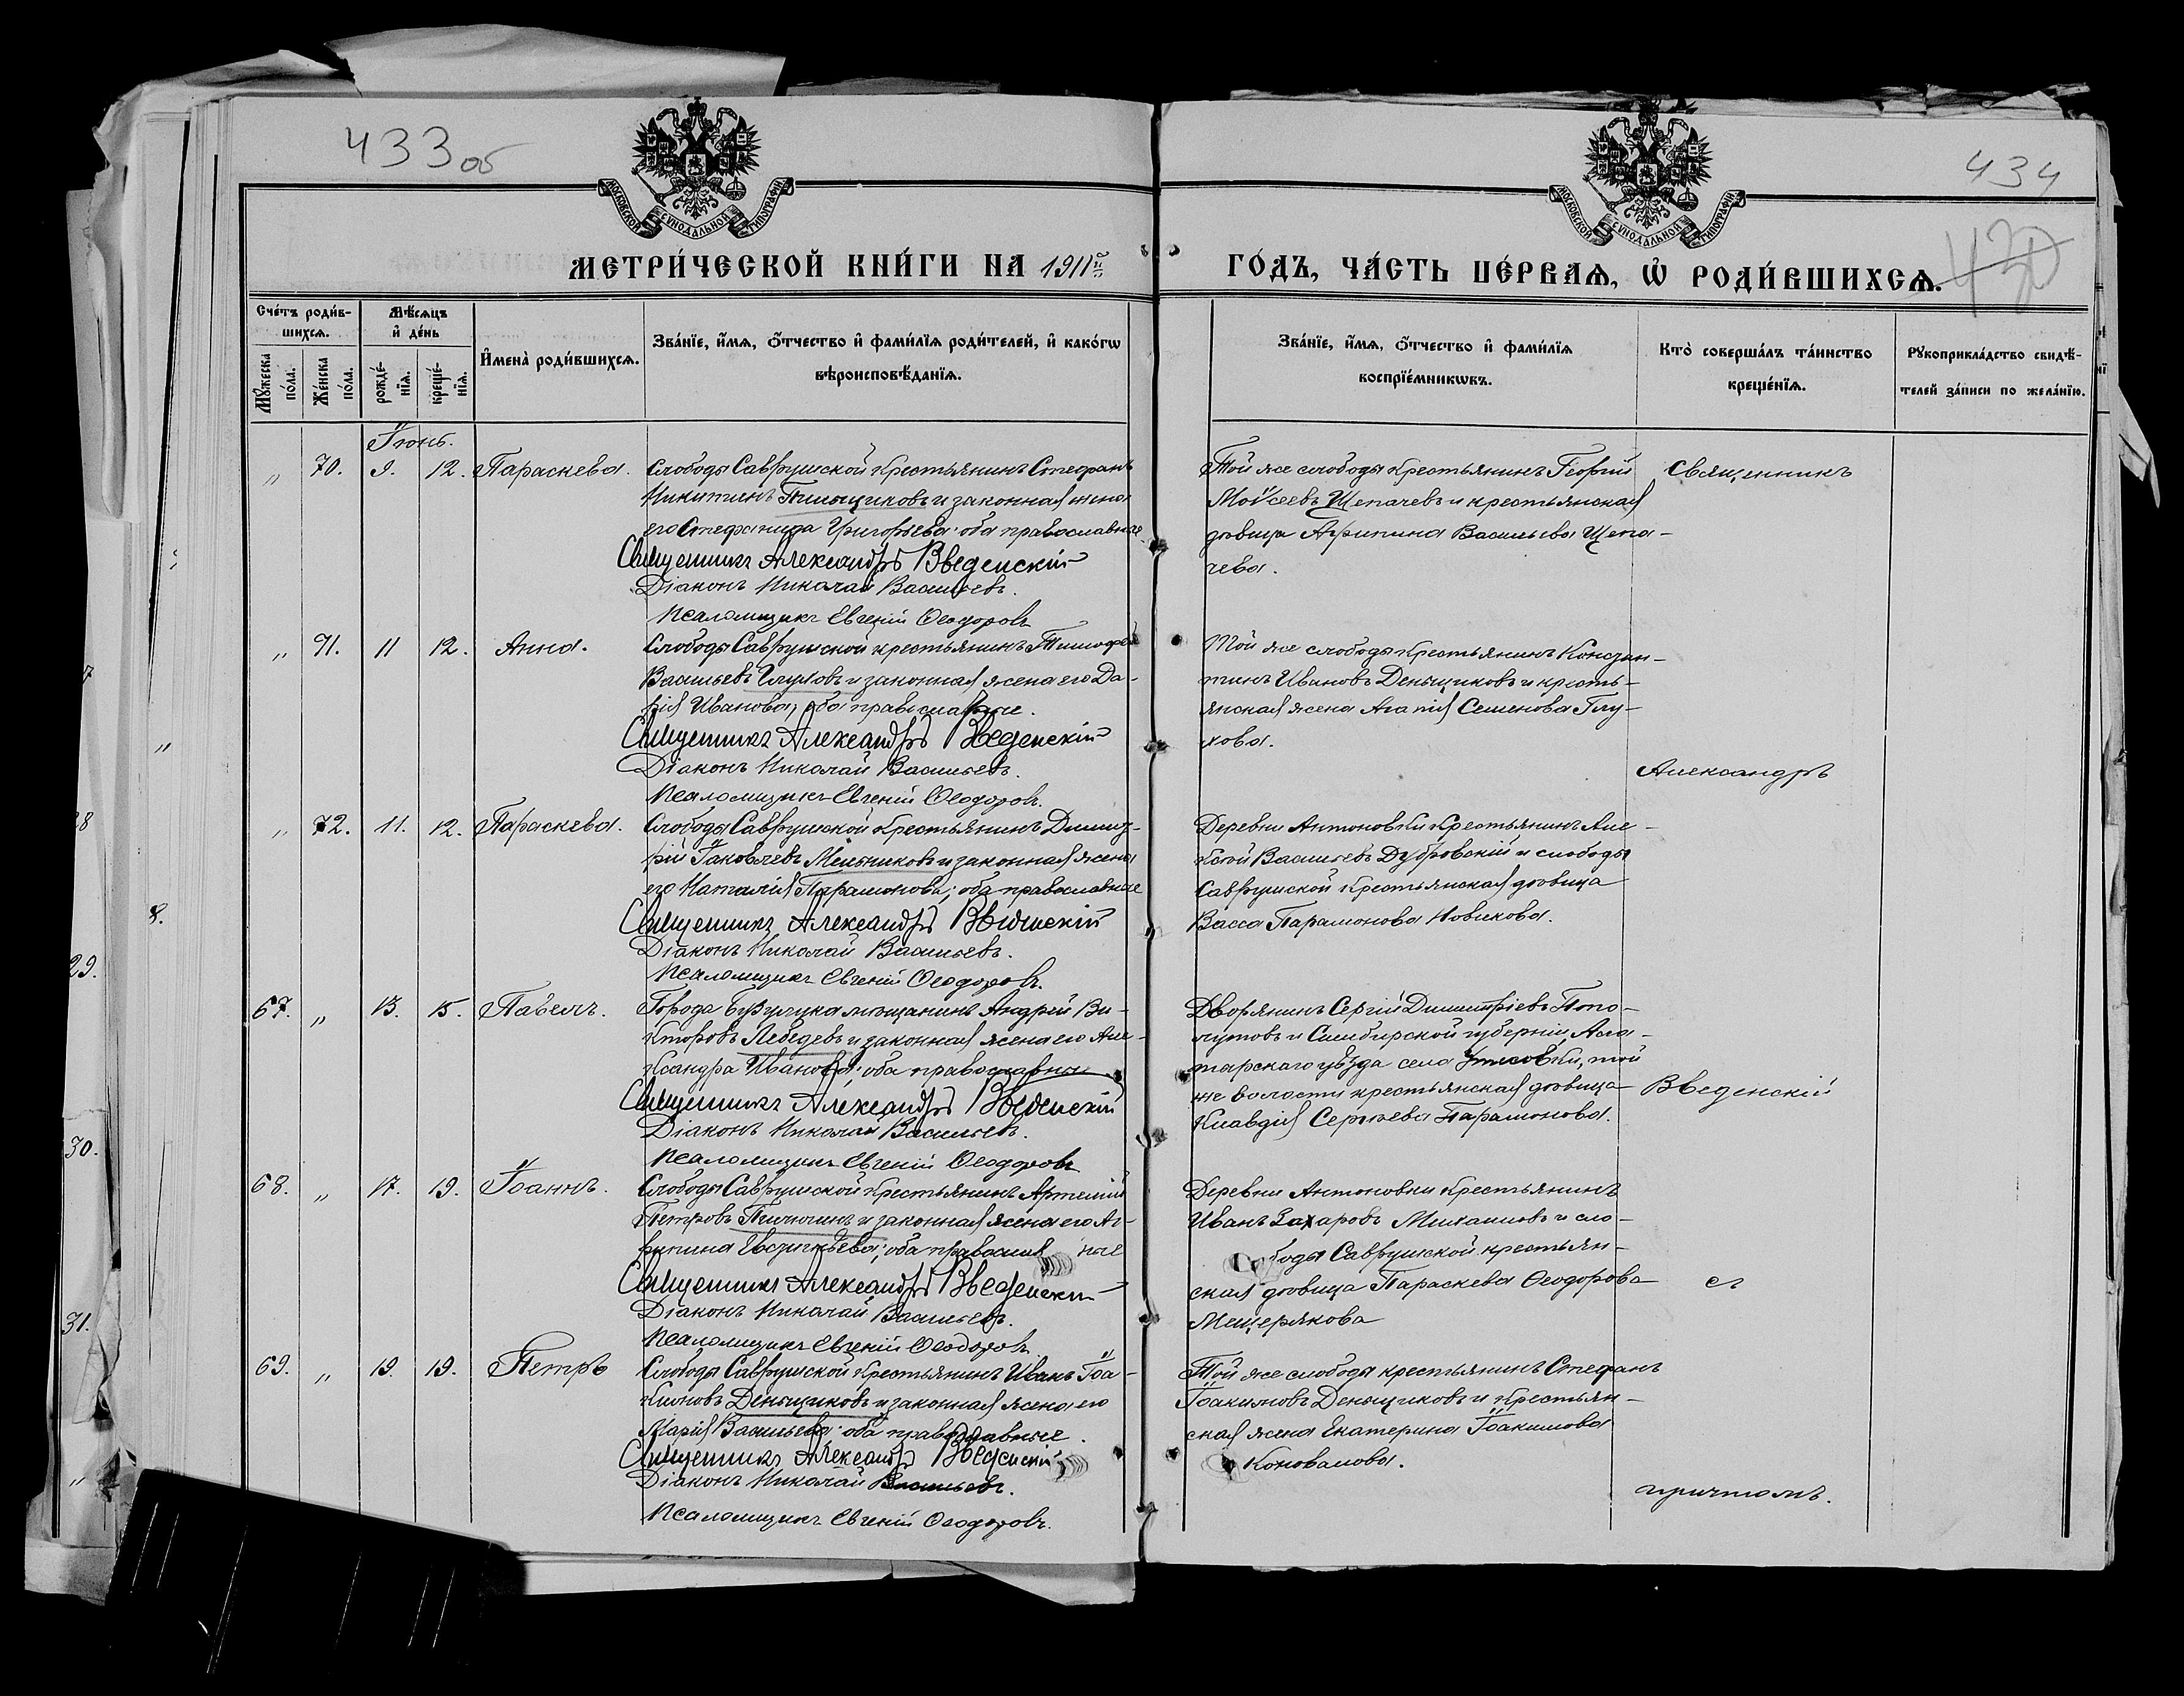 433 об
434
430
МОСКОВСКОЙ СѴНОДАЛЬНОЙ ТИПОГРАФІИ
МОСКОВСКОЙ СѴНОДАЛЬНОЙ ТИПОГРАФІИ
МЕТРИ́ЧЕСКОЙ КНИ́ГИ НА 1911й
ГО́ДЪ, ЧА́СТЬ ПЕ́РВАѦ, Ѡ҆ РОДИ́ВШИХСѦ.
Сче́тъ роди́в-
шихсѧ.
Мꙋ́жеска по́ла.
Же́нска по́ла.
Мѣ́сѧцъ
и҆ де́нь
рожде́-
нїѧ.
креще́-
нїѧ.
И҆мена̀ роди́вшихсѧ.
Зва́нїе, и҆́мѧ, ѻ҆́тчество и҆ фами́лїѧ роди́телей, и҆ како́гѡ
вѣроисповѣ́данїѧ.
Зва́нїе, и҆́мѧ, ѻ҆́тчество и҆ фами́лїѧ
воспрїе́мникѡвъ.
Кто̀ соверша́лъ та́инство
креще́нїѧ.
Рꙋкоприкла́дство свидѣ́-
телей за́писи по жела́нїю.
Іюнь.
„ 70. 9. 12. Параскева.
Слободы Саврушской крестьянинъ Стефанъ
Никитинъ и законная жена
его Стефанида Григорьева; оба православные
Священникъ Александръ Введенскій
Діаконъ Николай Васильевъ.
Псаломщикъ Евгеній Ѳеодоровъ
Той же слободы крестьянинъ Георгій
Моѵсеевъ Щепачевъ и крестьянская
дѣвица Агрипина Васильева Щепа-
чева.
Священникъ
„ 71. 11 12. Анна.
Слободы Саврушской крестьянинъ Тимофей
Васильевъ Глуховъ и законная жена его Да-
рія Иванова, оба православные.
Священникъ Александръ Введенскій
Діаконъ Николай Васильевъ.
Псаломщикъ Евгеній Ѳеодоровъ.
Той же слободы крестьянинъ Констан-
тинъ Ивановъ Деньщиковъ и кресть-
янская жена Агапія Семенова Глу-
хова.
Александръ
„ 72. 11. 12. Параскева.
Слободы Саврушской крестьянинъ Димит-
рій Іаковлевъ Мельниковъ и законная жена
его Наталія Парамонова; оба православные
Священникъ Александръ Введенскій
Діаконъ Николай Васильевъ.
Псаломщикъ Евгеній Ѳеодоровъ.
Деревни Антоновки крестьянинъ Але-
ксѣй Васильевъ Дубровскій и слободы
Саврушской крестьянская дѣвица
Васса Парамонова Новикова.
67. „ 13. 15. Павелъ.
Города Бузулука мѣщанинъ Андрей Ви-
кторовъ Лебедевъ и законная жена его Але-
ксандра Иванова; оба православные
Священникъ Александръ Введенскій
Діаконъ Николай Васильевъ.
Псаломщикъ Евгеній Ѳеодоровъ
Дворянинъ Сергій Димитріевъ Поло-
лутовъ и Симбирской губерніи, Ала-
тырскаго уѣзда села той
же волости крестьянская дѣвица
Клавдія Сергѣева Парамонова.
Введенскій
68. „ 17. 19. Іоаннъ.
Слободы Саврушской крестьянинъ Артемій
Петровъ Пилюгинъ и законная жена его Аг-
рипина Евстигнѣева; оба православные
Священникъ Александръ Введенскій
Діаконъ Николай Васильевъ.
Псаломщикъ Евгеній Ѳеодоровъ.
Деревни Антоновки крестьянинъ
Иванъ Захаровъ Михайловъ и сло-
боды Саврушской крестьян-
ская дѣвица Параскева Ѳеодорова
Мещерякова
съ
69. „ 19. 19. Петръ
Слободы Саврушской крестьянинъ Иванъ Іоа-
кимовъ Деньщиковъ и законная жена его
Марія Васильева; оба православные.
Священникъ Александръ Введенскій
Діаконъ Николай Васильевъ.
Псаломщикъ Евгеній Ѳеодоровъ.
Той же слободы крестьянинъ Стефанъ
Іоакимовъ Деньщиковъ и крестьян-
ская жена Екатерина Іоакимова
Коновалова.
причтомъ.
29.
30.
31.
8.